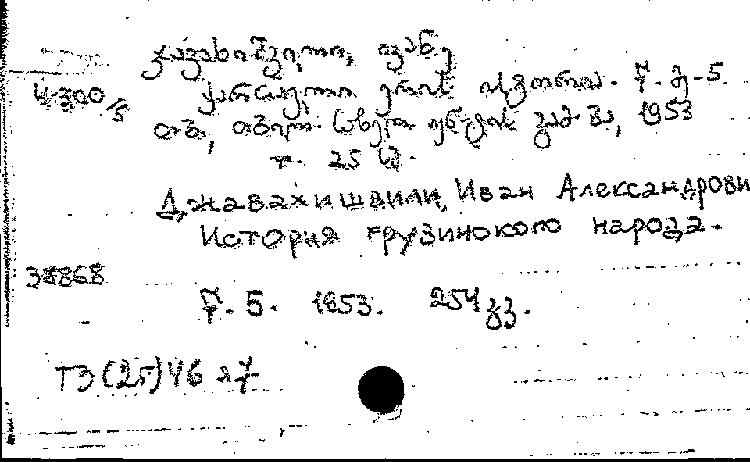 ჯავახიშვილი, ივანე
4300/5
ქართველი ერის ისტორია. წ. 5
თბ., თბილ. სახელ. უნ-ტის გამ-ბა, 1953
25 სმ.
Джавахишвили, Иван Александрови
История грузинского народа.
38868
წ. 5. 1953. 254 გვ.
ТЗ(25)46 27